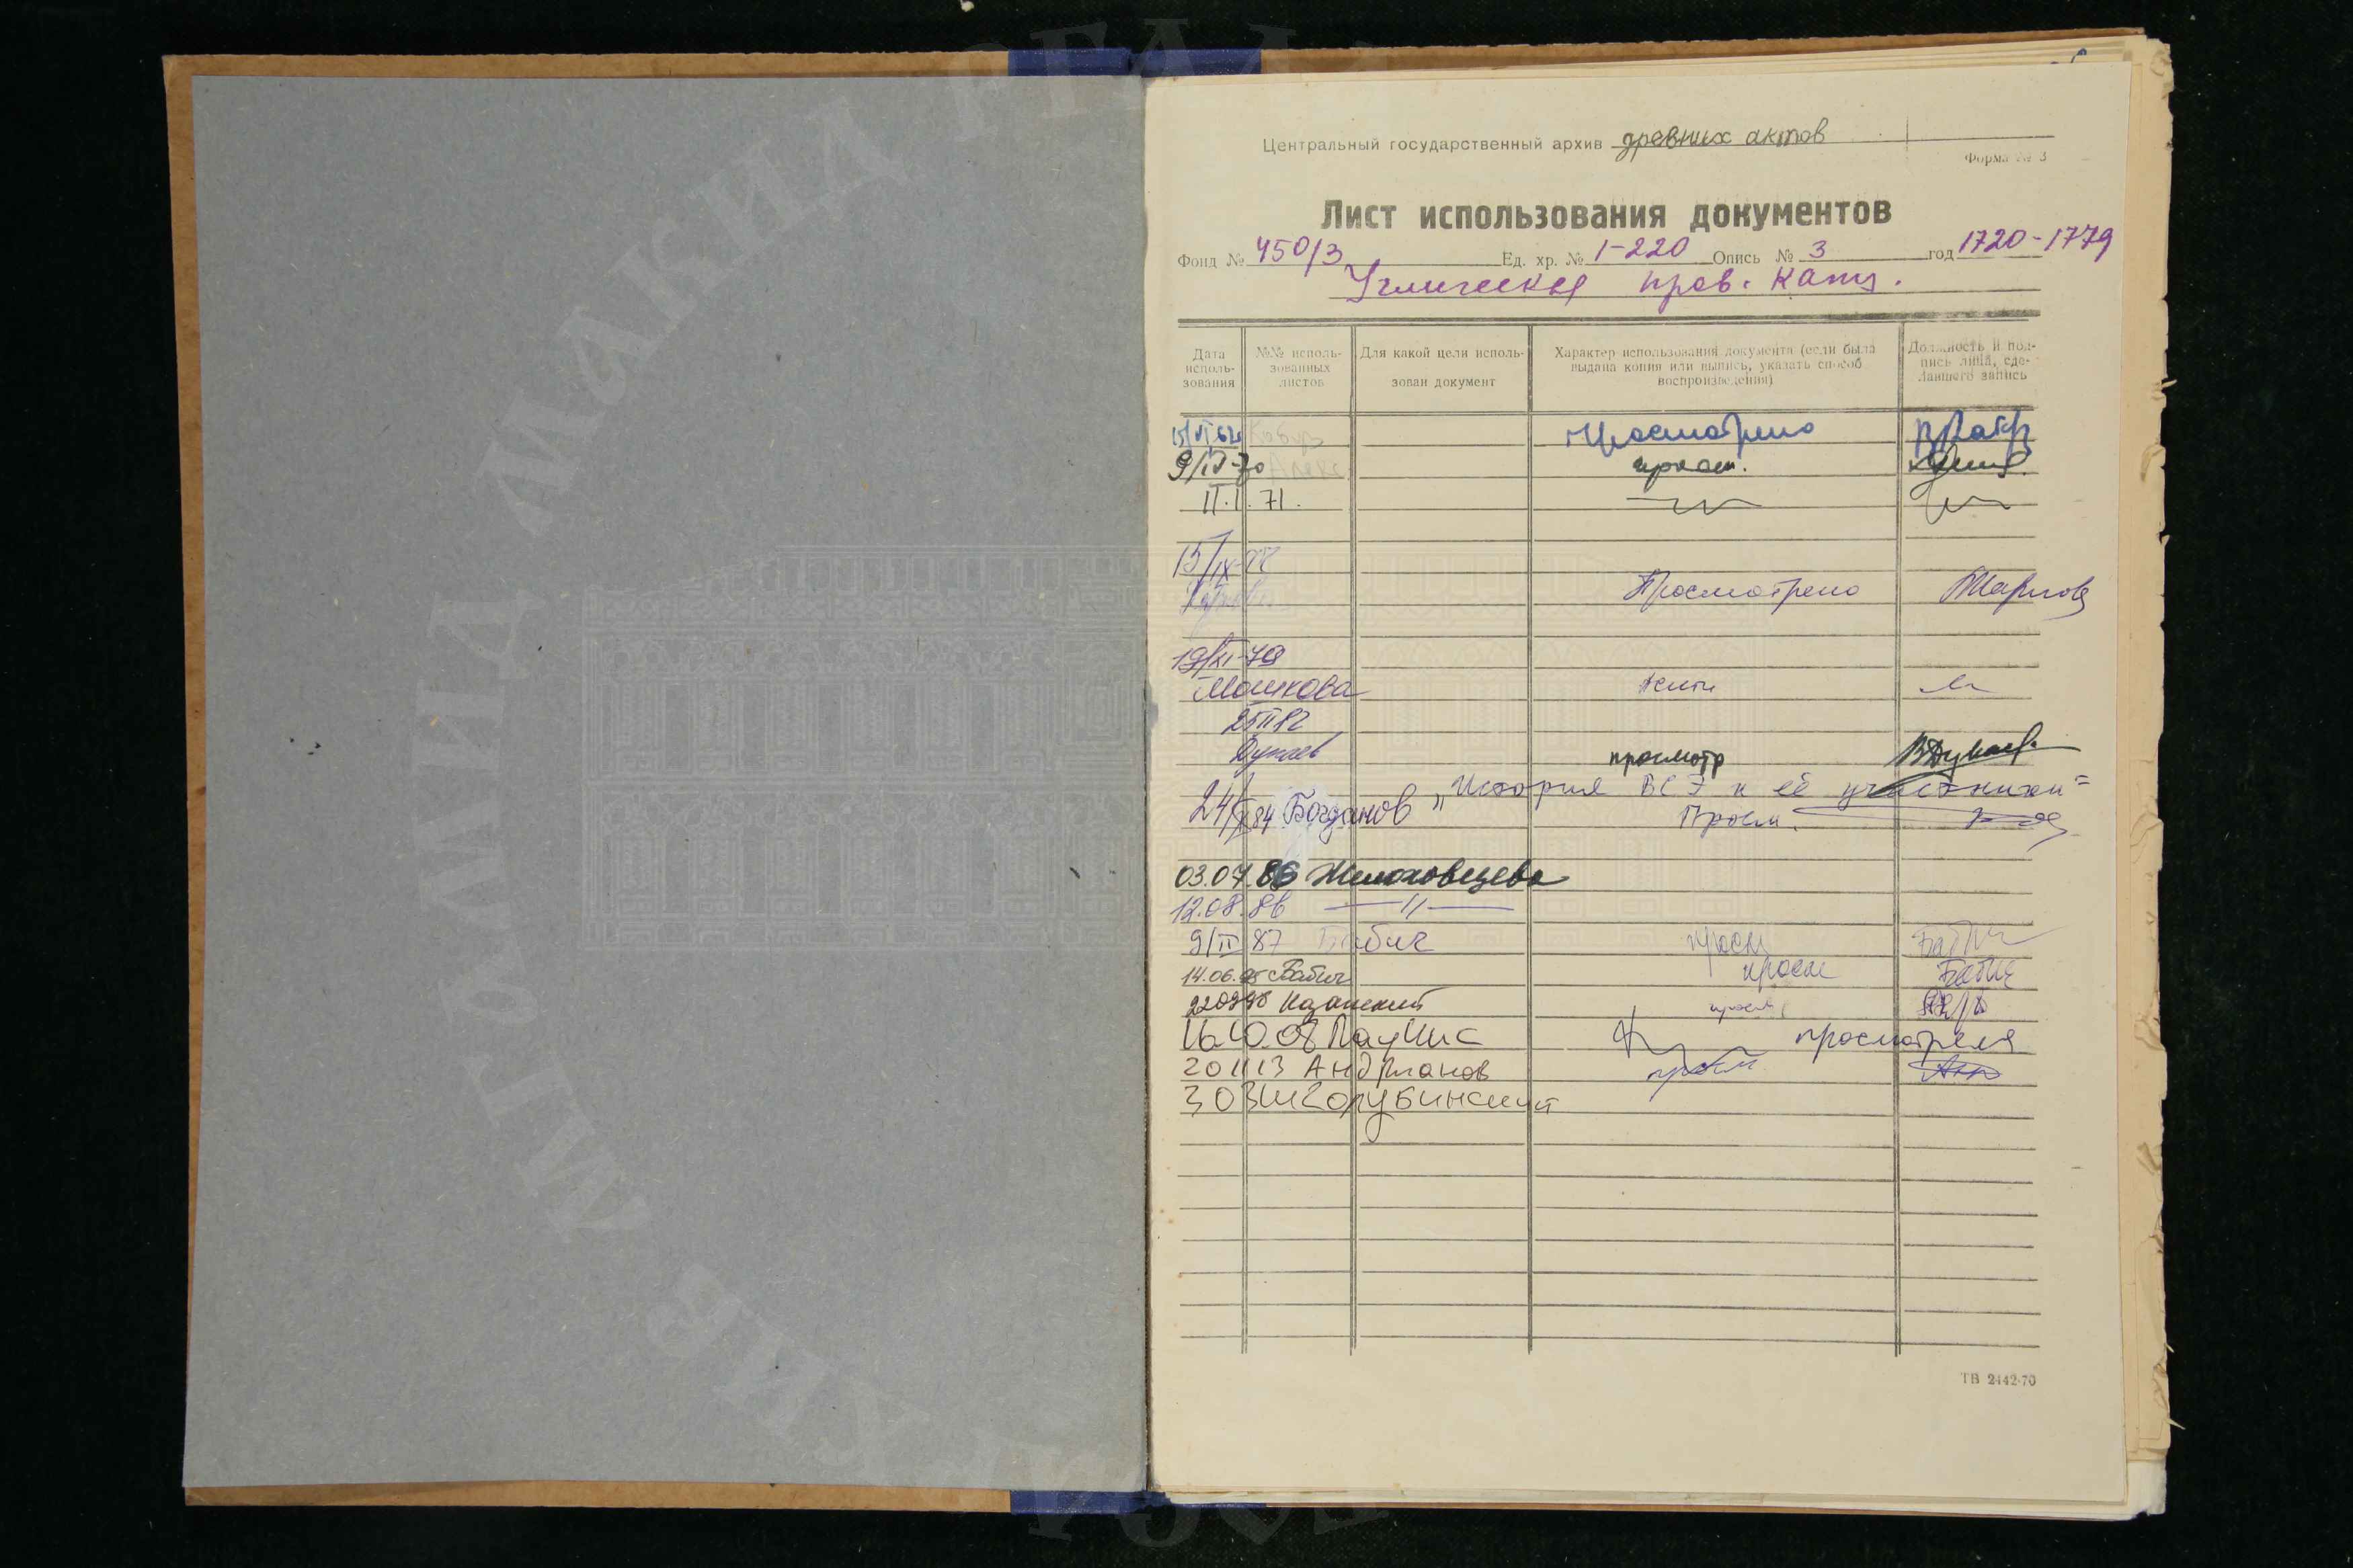 Центральный государственный архив древних актов
Форма № 3
Лист использования документов
Фонд № 450/3 Ед. хр. № 1-220 Опись № 3 год 1720-1779
Угличская пров. канц.
Дата исполь- зования
№№ исполь- зованных листов
Для какой цели исполь- зован документ
Характер использования документа (если была выдана копия или выпись, указать способ воспроизведения)
Должность и под- пись лица, сде- лавшего запись
Просмотрено
9/IV-70 Алекс
II.I.71.
15/IX
Просмотрено
19/XI-79
Мошкова
25 II 82
Дунаев просмотр
24/ 84 Богданов „История ВСЭ и её участники"
Просм.
03.07.86 Желоховцева
12.08.86 —〃—
9/II 87 Бабич просм Бабич
14.06.95 Бабич просм Бабич
220998 Казанский просм
16.10.08 Паункс просмотрел
201113 Андрианов просм
Голубинский
ТВ 2442-70